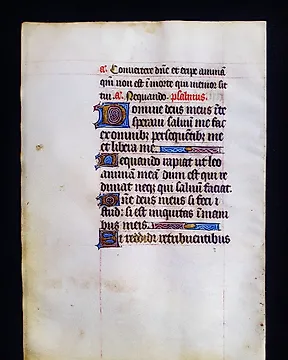 a. Convertere dñe et eripe animã
qm̃ non est ĩ morte qui memor sit
tui. a. Nequando. psalmus.
Domine deus meus ĩ te
speraui saluũ me fac
ex omnibꝫ persequẽtibꝫ me
et libera me.
Nequando rapiat ut leo
animam meã dum est qui re
dimat neqꝫ qui saluũ faciat.
Dñe deus meus si feci i
stud: si est iniquitas ĩ mani
bus meis.
Si reddidi retribuentibus